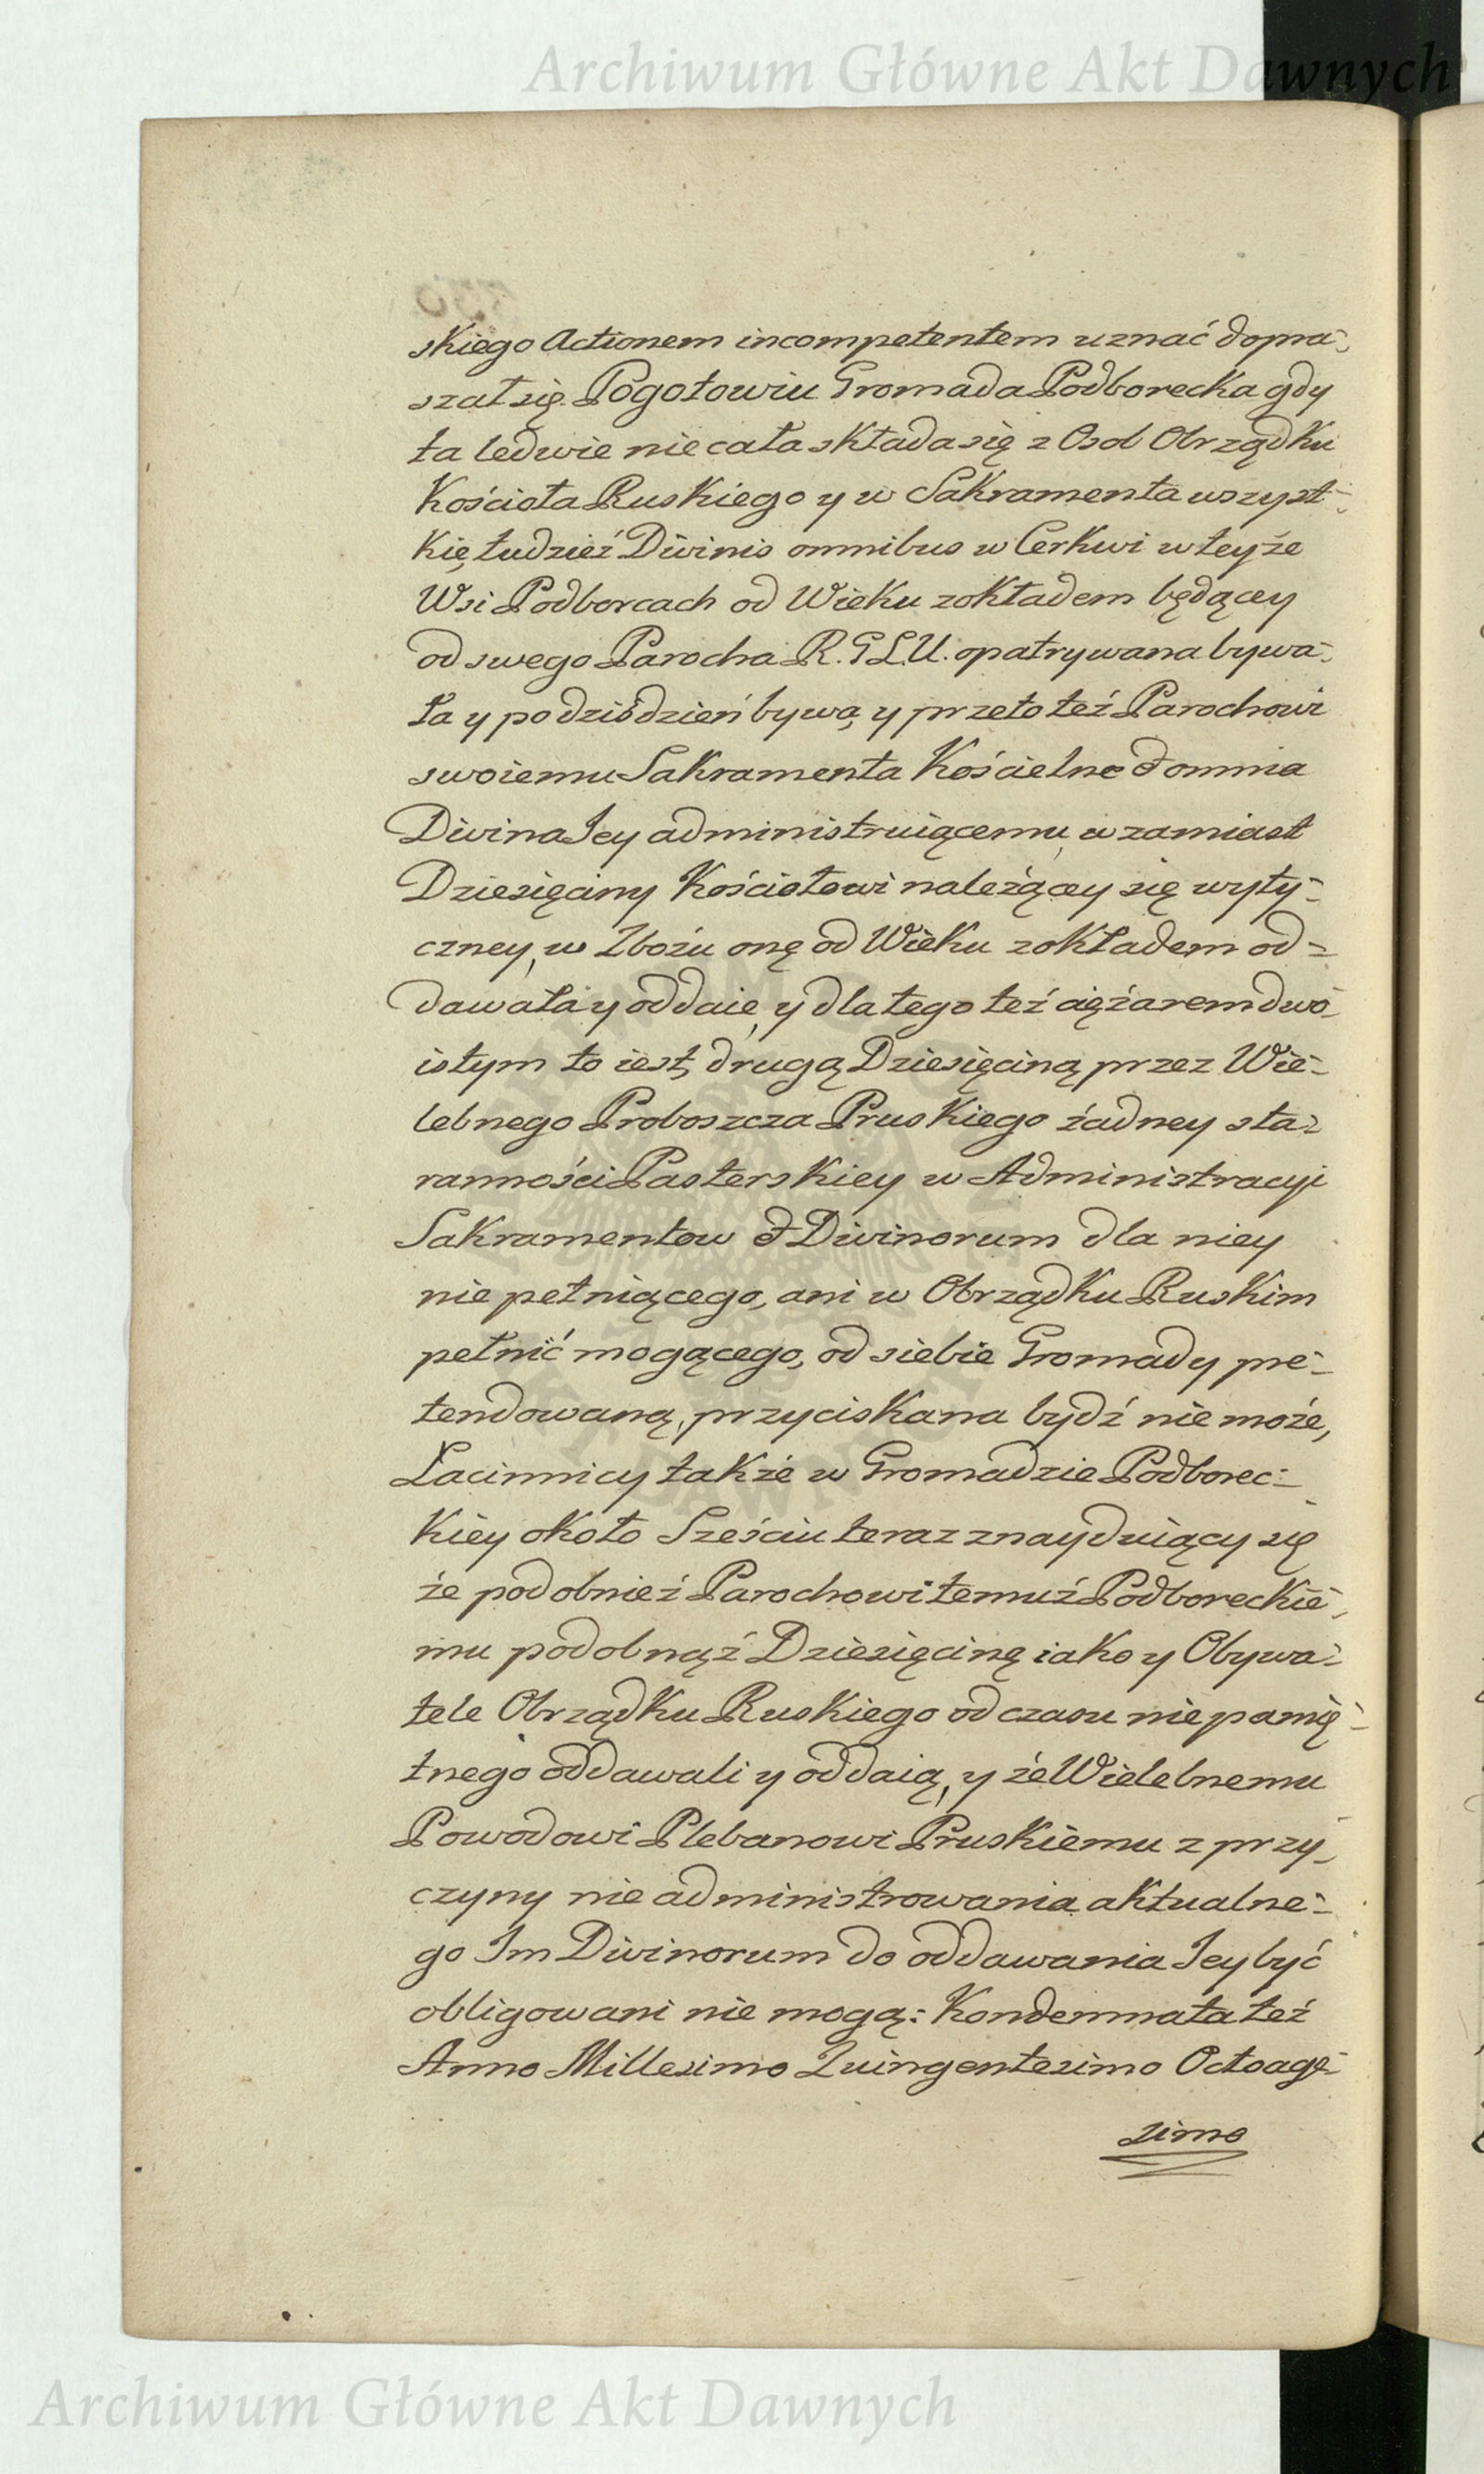 Archiwum Główne Akt Dawnych
skiego Actionem incompetentem uznać dopra-
szał się. Pogotowiu Gromada Podborecka gdy
ta ledwie nie cała składa się z Osob Obrządku
Kościoła Ruskiego y w Sakramenta wszyst-
kię tudzież Divinis omnibus w Cerkwi w teyże
Wsi Podborcach od Wieku zokładem będącey
od swego Parocha R. G L.U. opatrywana bywa-
ła y po dziś dzień bywa, y przeto też Parochowi
swoiemu Sakramenta Kościelne & omnia
Divina Jey administruiącemu, w zamiast
Dziesięciny Kościołowi należącey się wyty-
czney, w Zbożu onę od Wieku zokładem od=
dawała y oddaie, y dla tego też ciężarem dwo-
istym to iest, drugą Dziesięciną przez Wie-
lebnego Proboszcza Pruskiego żadney sta-
ranności Pasterskiey w Administracyi
Sakramentow & Divinorum dla niey
nie pełniącego, ani w Obrządku Ruskim
pełnić mogącego, od siebie Gromady pre-
tendowaną, przyciskana bydź nie może,
Łacinnicy także w Gromadzie Podborec-
kiey około Sześciu teraz znayduiący się
że podobnież Parochowi temuż Podboreckie-
mu podobnąż Dziesięcinę iako y Obywa-
tele Obrządku Ruskiego od czasu nie pamię-
tnego oddawali y oddaią, y że Wielebnemu
Powodowi Plebanowi Pruskiemu z przy-
czyny nie administrowania aktualne-
go Im Divinorum do oddawania Jey być
obligowani nie mogą: Kondemnata też
Anno Millesimo Quingentesimo Octoage-
simo
Archiwum Główne Akt Dawnych